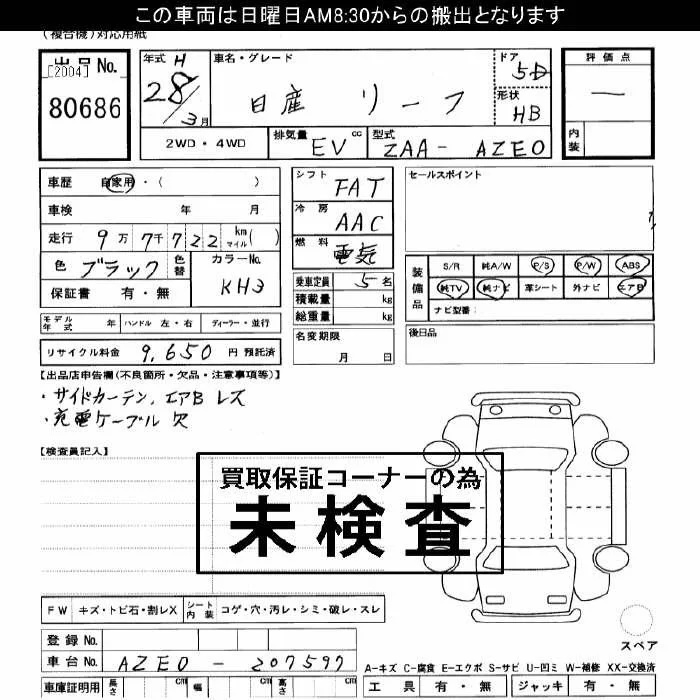 この車両は日曜日AM8:30からの搬出となります
(複合機)対応用紙
出品No.
[2004]
80686
年式 H
28/3月
車名・グレード
日産 リーフ
ドア
5D
形状
HB
評価点
—
内装
2WD・4WD
排気量 EV cc
型式 ZAA- AZE0
車歴 自家用・( )
車検 年 月
走行 9万7千722 km マイル( )
色 ブラック 色替
カラーNo.
KH3
保証書 有・無
シフト FAT
冷房 AAC
燃料 電気
乗車定員 5名
積載量 kg
総重量 kg
セールスポイント
装備品
S/R 純A/W P/S P/W ABS
純TV 純ナビ 革シート 外ナビ エアB
ナビ型番:
モデル年式 年 ハンドル 左・右 ディーラー・並行
名変期限
月 日
後日品
リサイクル料金 9,650 円 預託済
【出品店申告欄(不良箇所・欠品・注意事項等)】
・サイドカーテン、エアB レス
・充電ケーブル 欠
【検査員記入】
買取保証コーナーの為
未検査
FW キズ・トビ石・割レX シート内装 コゲ・穴・汚レ・シミ・破レ・スレ
登録No.
車台No. AZE0 - 207597
スペア
A-キズ C-腐食 E-エクボ S-サビ U-凹ミ W-補修 XX-交換済
車庫証明用 長さ cm 幅 cm 高さ cm
工具 有・無 ジャッキ 有・無